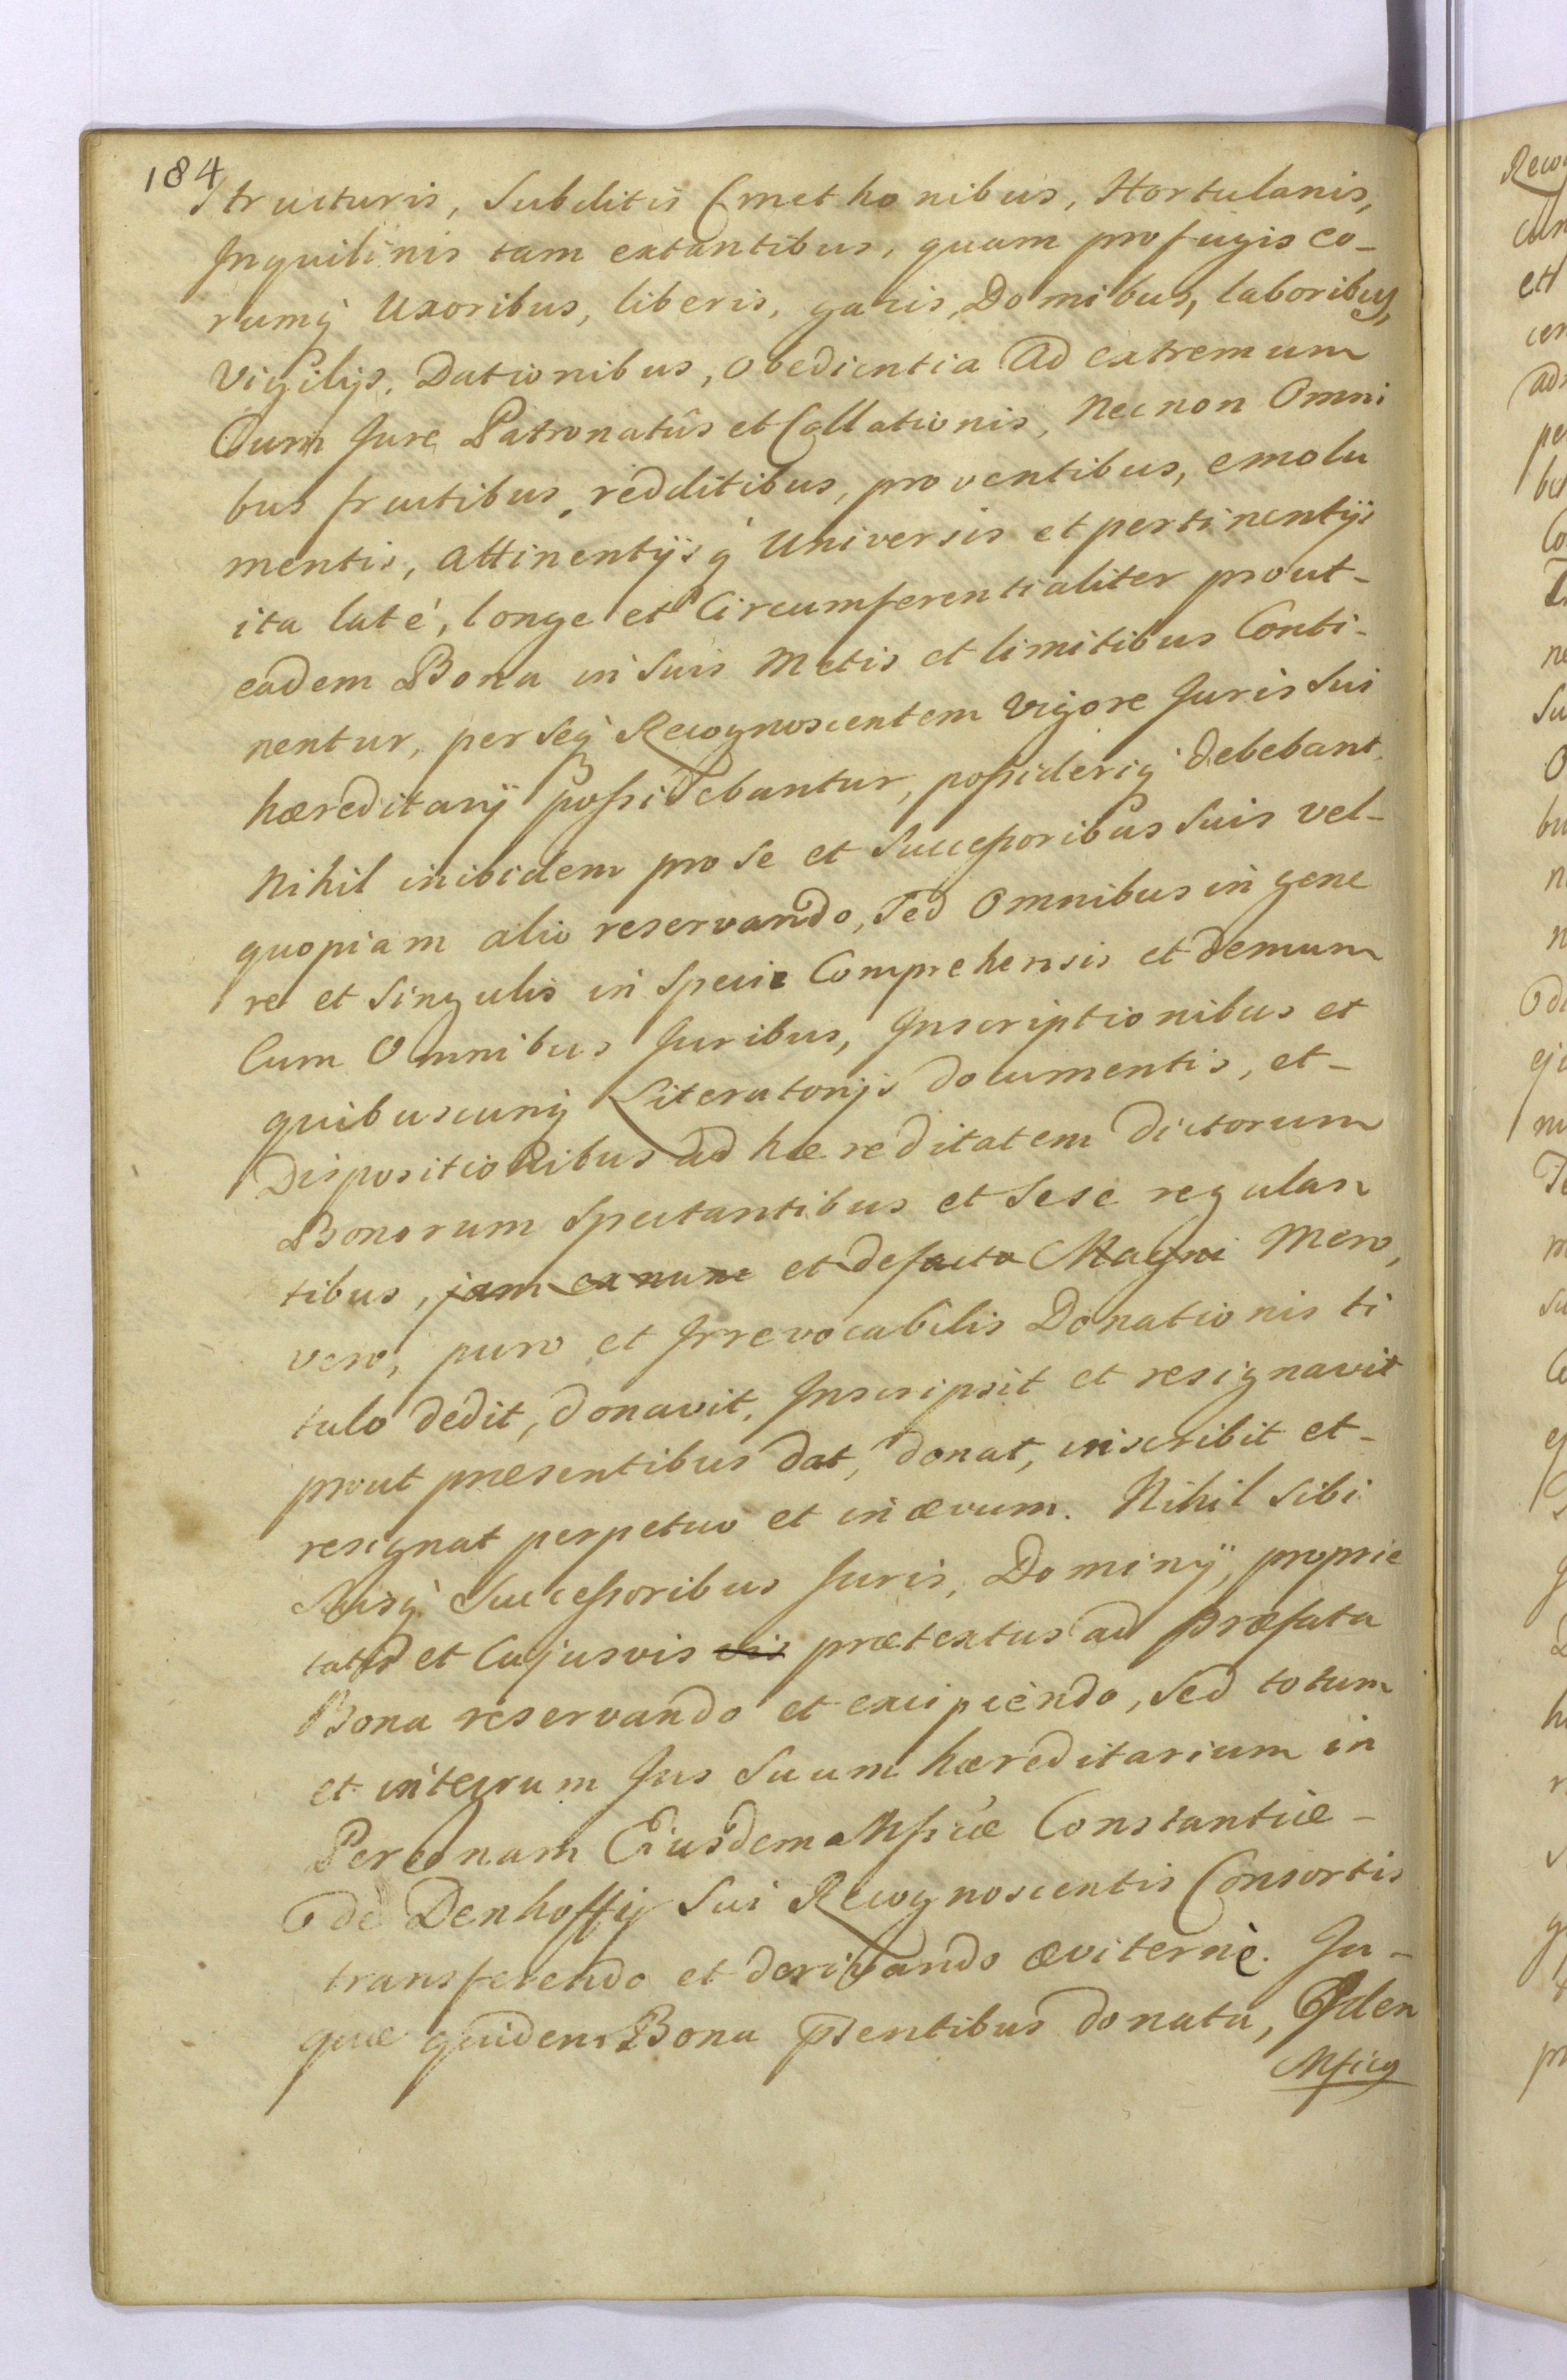 184
structuris, Subditis Cmethonibus, Hortulanis,
Inquilinis tam extantibus, quam profugis eo-
rumq́ Uxoribus, liberis, gazis, Domibus, laboribus,
Vigilijs, Dationibus, obedientia Ad extremum
Cum Jure Patronatûs et Collationis, Nec non Omni
bus fructibus, redditibus, proventibus, emolu
mentis, attinentÿsq́ Universis et pertinentÿs
ita laté, longe et Circumferentialiter prout-
eadem Bona in Suis Metis et limitibus Conti-
nentur, per Seq́ Recognoscentem Vigore Juris Sui
hæreditarÿ possidebantur, possideriq́ debebant.
Nihil inibidem pro Se et Successoribus Suis vel-
quopiam alio reservando, Sed Omnibus in gene
re et Singulis in Specie Comprehensis et demum
Cum Omnibus Juribus, Inscriptionibus et
quibuscunq́ Literatorijs documentis, et-
Dispositionibus ad hæreditatem dictorum
Bonorum Spectantibus et Sese regulan
tibus, jam ex nunc et de facto Magni Mero,
vero, puro et Irrevocabilis Donationis ti
tulo dedit, donavit, Inscripsit et resignavit
prout præsentibus dat, donat, inscribit et-
resignat perpetuo et in ævum. Nihil Sibi
Suisq́ Successoribus Juris, Dominÿ, proprie
tatis et Cujusvis vis prætextus ad præfata
Bona reservando et excipiendo, Sed totum
et integrum Jus Suum hæreditarium in
Personam Eiusdem Mficæ Constantiæ-
de Denhoffÿ Sui Recognoscentis Consortis
transferendo et derivando æviternè. In-
quæ quidem Bona pſentibus donata, Iden
Mficq
Reco